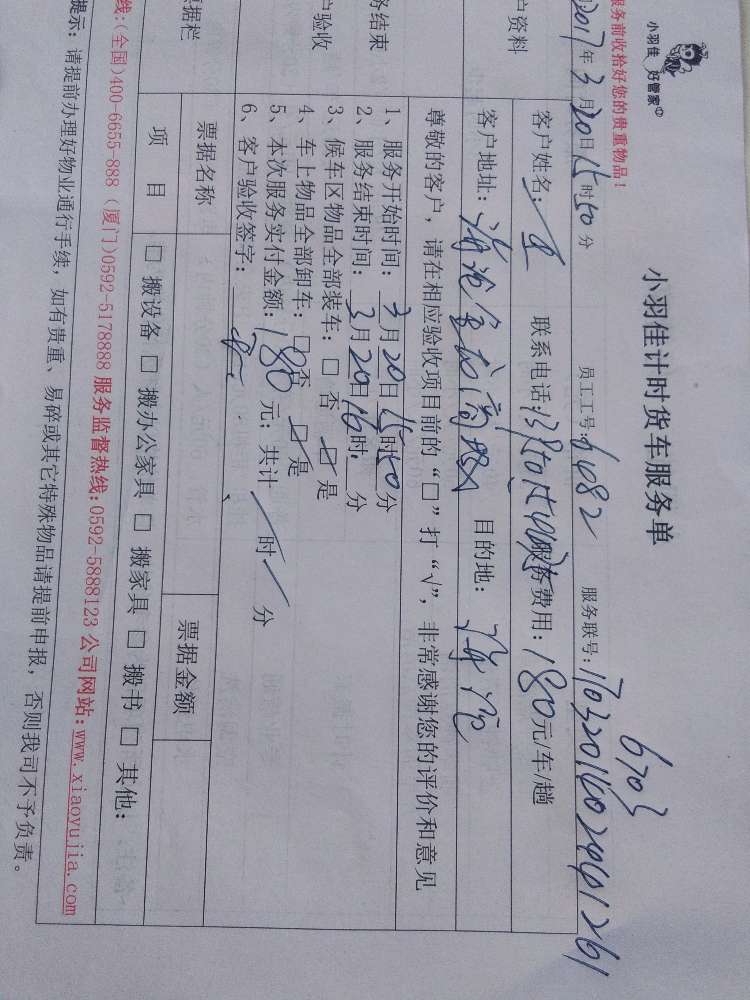 小羽佳 好管家
服务前收拾好您的贵重物品！
小羽佳计时货车服务单
6703
2017年3月20日15时50分 员工工号:6482 服务联号:
户资料
客户姓名: 联系电话: 服务费用: 180元/车/趟
客户地址: 目的地:
尊敬的客户，请在相应验收项目前的“□”打“√”，非常感谢您的评价和意见
务结束
户验收
1、服务开始时间: 3月20日15时50分
2、服务结束时间: 3月20日16时 分
3、候车区物品全部装车: □ 否 ☑ 是
4、车上物品全部卸车: □ 否 ☑ 是
5、本次服务实付金额: 180元; 共计 / 时 / 分
6、客户验收签字:
据栏
票据名称 票据金额
项 目 □ 搬设备 □ 搬办公家具 □ 搬家具 □ 搬书 □ 其他:
线:(全国)400-6655-888 (厦门)0592-5178888 服务监督热线:0592-5888123 公司网站:www.xiaoyujia.com
提示: 请提前办理好物业通行手续，如有贵重、易碎或其它特殊物品请提前申报，否则我司不予负责。